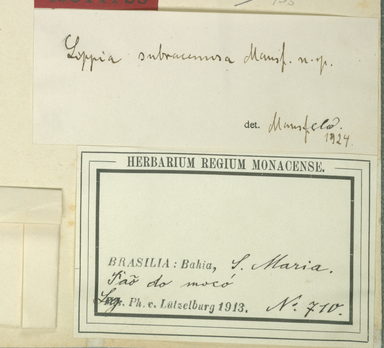 Lippia subracemosa Mansf. n. sp.
det. Mansfeld.
1924.
HERBARIUM REGIUM MONACENSE.
BRASILIA: Bahia, S. Maria.
do mocó
Leg. Ph. v. Lützelburg 1913. No. 710.